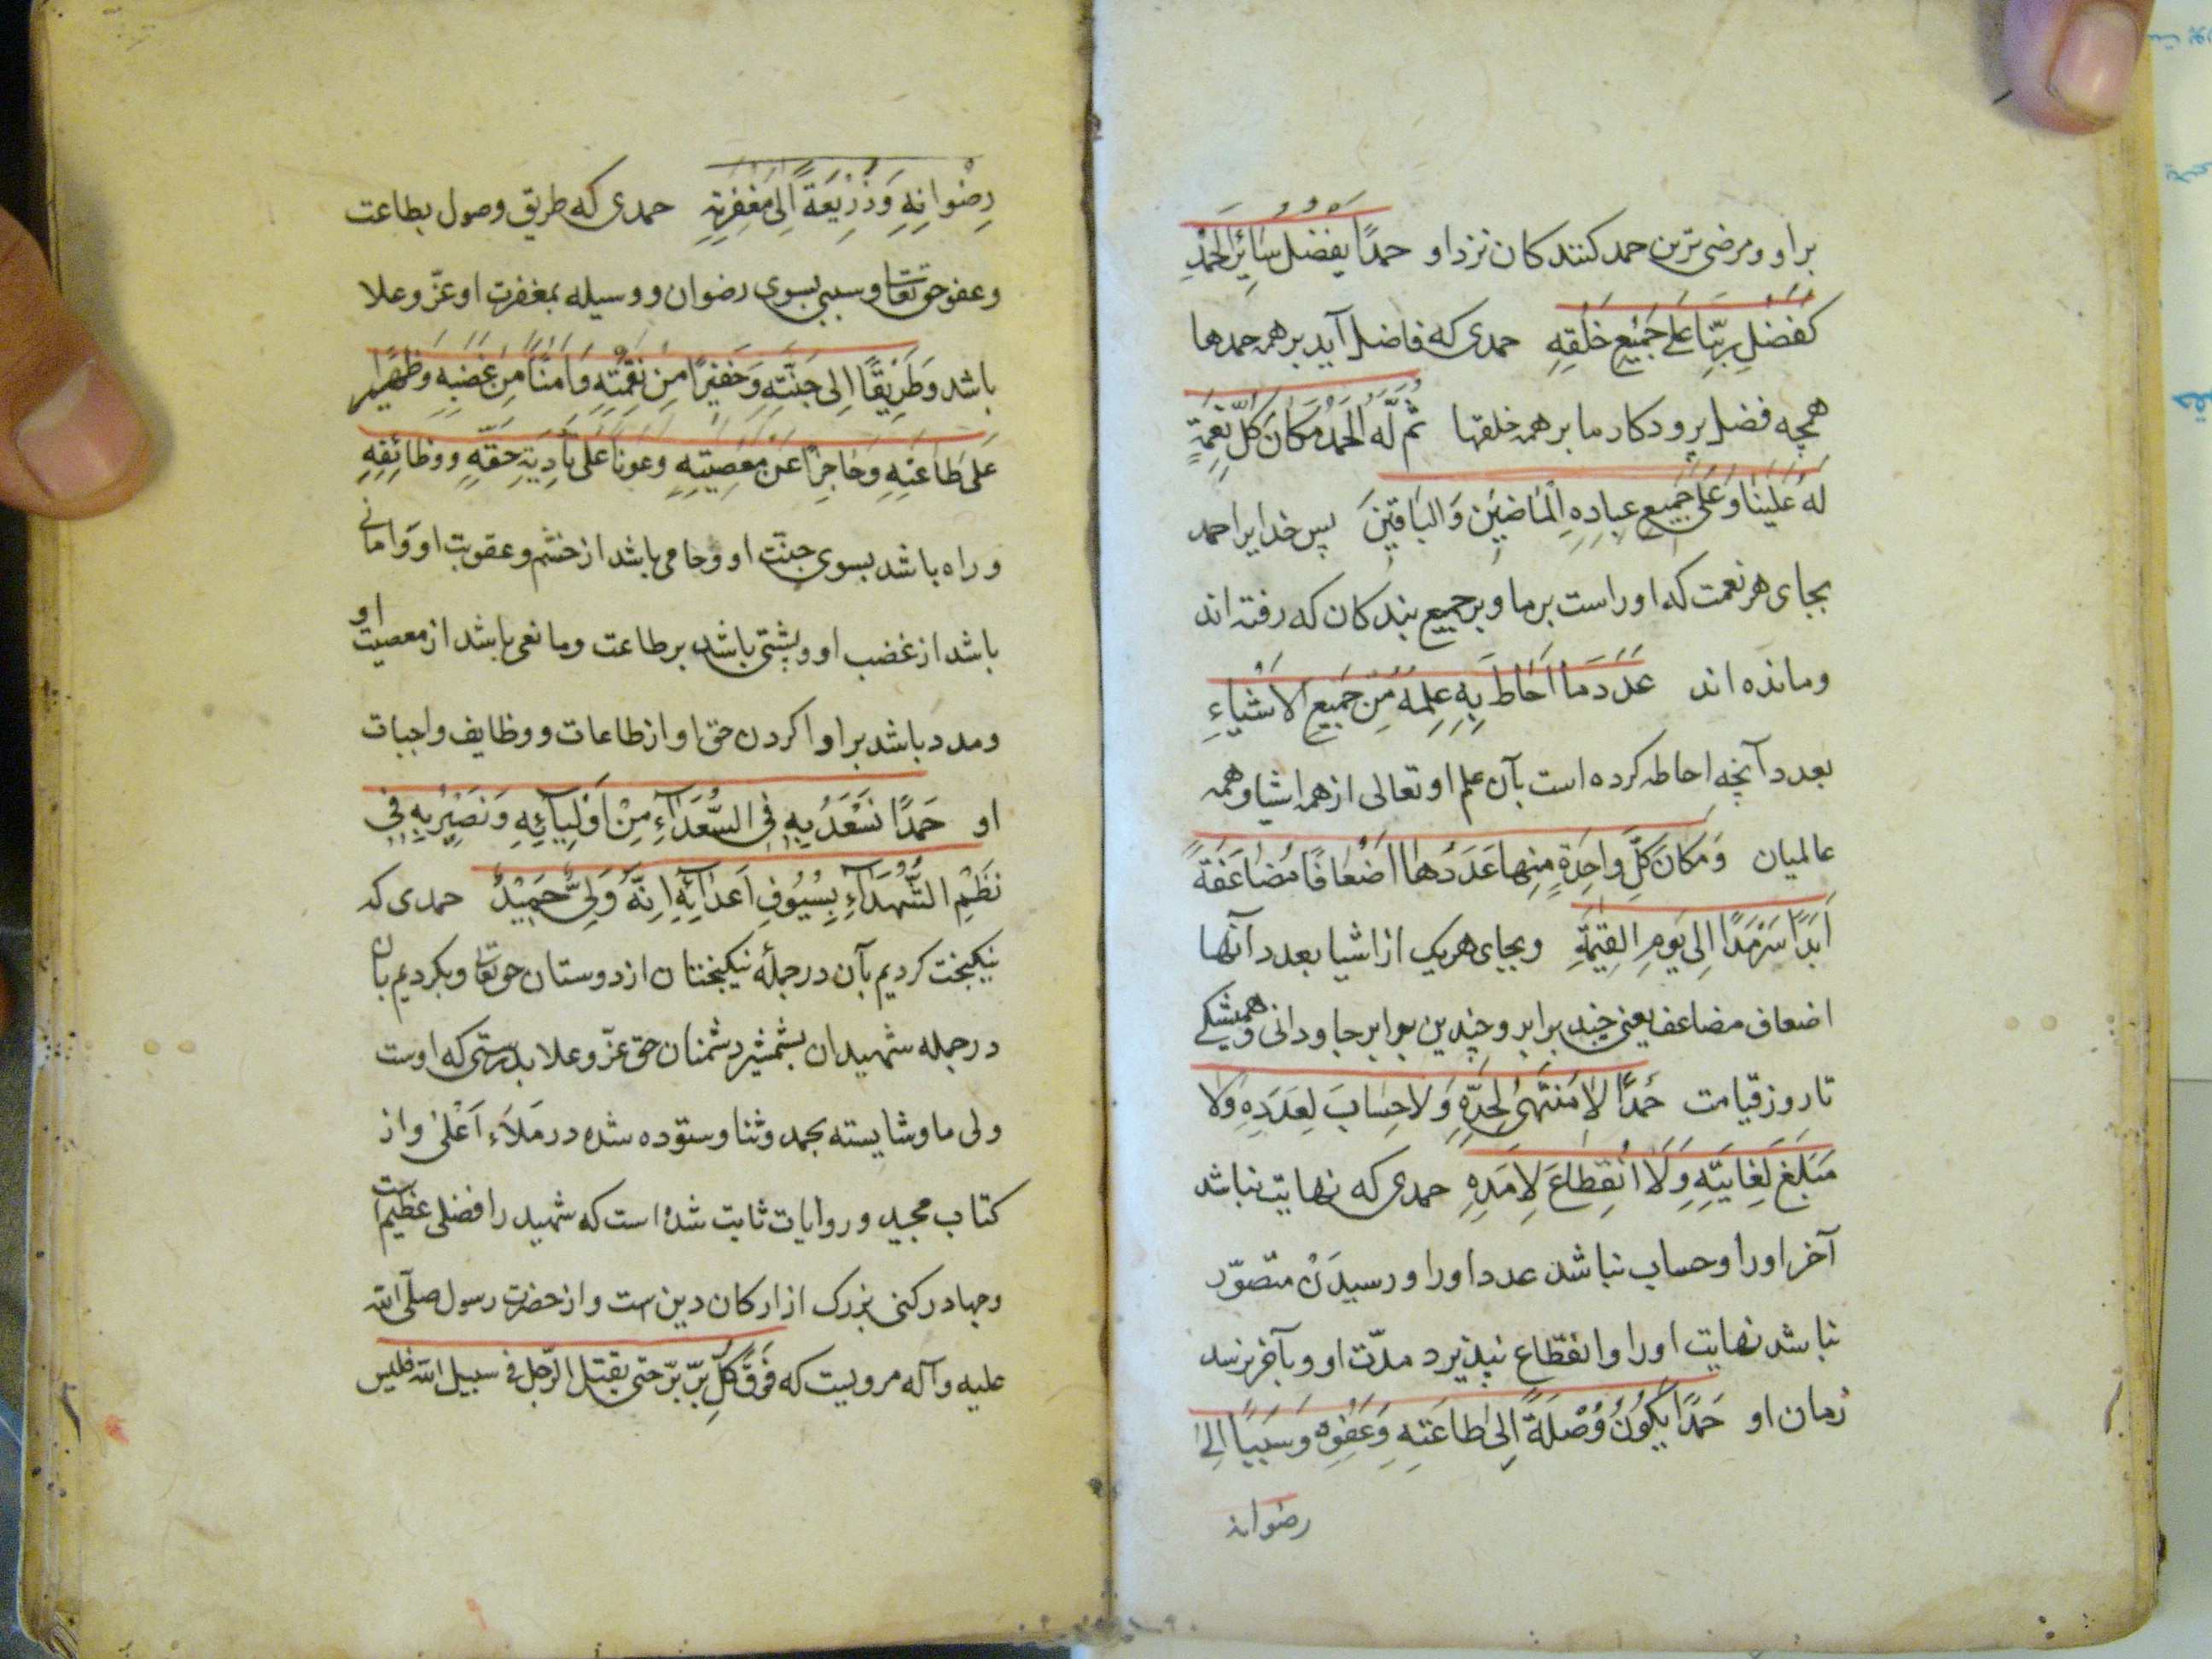 براو و مرضی‌ترین حمد کنندکان نزد او حمدًا یفضل سَائِرَ الحَمْدِ
کَفَضْلِ رَبِّنا عَلی جَمیْعِ خَلْقِهِ حمدی که فاضل آید بر همه حمدها
همچه فضل پرودکار ما بر همه خلقها ثُمَّ لَهُ الحَمْدُ مَکَانَ کُلِّ نِعْمَةٍ
لَهُ عَلَیْنَا وَ عَلی جَمیعِ عِبادِهِ الْمَاضِیْنَ وَ البَاقِیْنَ پس خدایرا حمد
بجای هر نعمت که او راست بر ما و بر جمیع بندکان که رفته اند
و مانده اند عَدَدَ مَا اَحَاطَ بِهِ عِلْمُهُ مِنْ جَمیْعِ الاَشْیَاءِ
بعدد آنچه احاطه کرده است بآن علم او تعالی از همه اشیا و همه
عالمیان وَ مَکَانَ کُلِّ واحِدَةٍ مِنْها عَدَدُها اَضْعَافًا مُضَاعَفَةً
اَبَدًا سَرْمَدًا اِلی یَوْمِ القِیٰمَةِ و بجای هریک از اشیا بعدد آنها
اضعاف مضاعف یعنی چند برابر و چندین برابر جاودانی و همیشکی
تا روز قیامت حَمْدًا لا مُنْتَهیٰ لِحَدِّهِ وَ لا حِسَابَ لِعَدَدِهِ وَلا
مَبْلَغَ لِغایَتِهِ وَ لَا انْقِطاعَ لِاَمَدِهِ حمدی که نهایت نباشد
آخر او را و حساب نباشد عدد او را و رسیدن متصوّر
نباشد نهایت او را و انقطاع نپذیرد مدّت او و بآخر نرسد
زمان او حَمْدًا یَکُونُ وُصْلَةً اِلی طَاعَتِهِ وَ عَفْوِهِ وَ سَبَبًا اِلیٰ
رضوانه
رِضْوَانِهِ وَ ذَرِیْعَةً اِلی مَغْفِرَتِهِ حمدی که طریق وصول بطاعت
و عفو حق تعالی و سببی بسوی رضوان و وسیله بمغفرت او عزّ و علا
باشد وَ طَرِیْقًا اِلی جَنَّتِهِ وَ خَفِیْرًا مِنْ نِقْمَتِهِ وَ اَمْنًا مِنْ غَضَبِهِ وَ ظَهِیْرًا
عَلی طَاعَتِهِ وَ حَاجِزًا عَنْ مَعْصِیَتِهِ وَ عَوْنًا عَلی تَأدِیَةِ حَقِّهِ وَ وَظَائِفِهِ
و راه باشد بسوی جنّت او و حامی باشد از خشم و عقوبت او و امانی
باشد از غضب او و پشتی باشد بر طاعت و مانعی باشد از معصیت او
و مدد باشد بر اوا کردن حق او از طاعات و وظایف واجبات
او حَمْدًا نَسْعَدُ بِهِ فِی السُّعَدَاءِ مِنْ اَوْلِیَائِهِ وَ نَصِیْرُ بِهِ فِی
نَظْمِ الشُّهَدَآءِ بِسُیُوفِ اَعْدَائِهِ اِنَّهُ وَلِیٌّ حَمِیْدٌ حمدی که
نیکبخت کردیم بآن در جملهٔ نیکبختان از دوستان حق تعالی و بکردیم بان
در جمله شهیدان بشمشیر دشمنان حق عزّ و علا بدرستی که اوست
ولی ما و شایسته بحمد و ثنا و ستوده شده در مَلَاَءِ اَعْلیٰ و از
کتاب مجید و روایات ثابت شده است که شهید را فضلی عظیم است
و جهاد رکنی بزرک از ارکان دین است و از حضرت رسول صلّی الله
علیه و آله مرویست که فَوْقَ کُلِّ بِرٍّ بِرٌّ حتی یقتل الرّجل فی سبیل الله فلیس